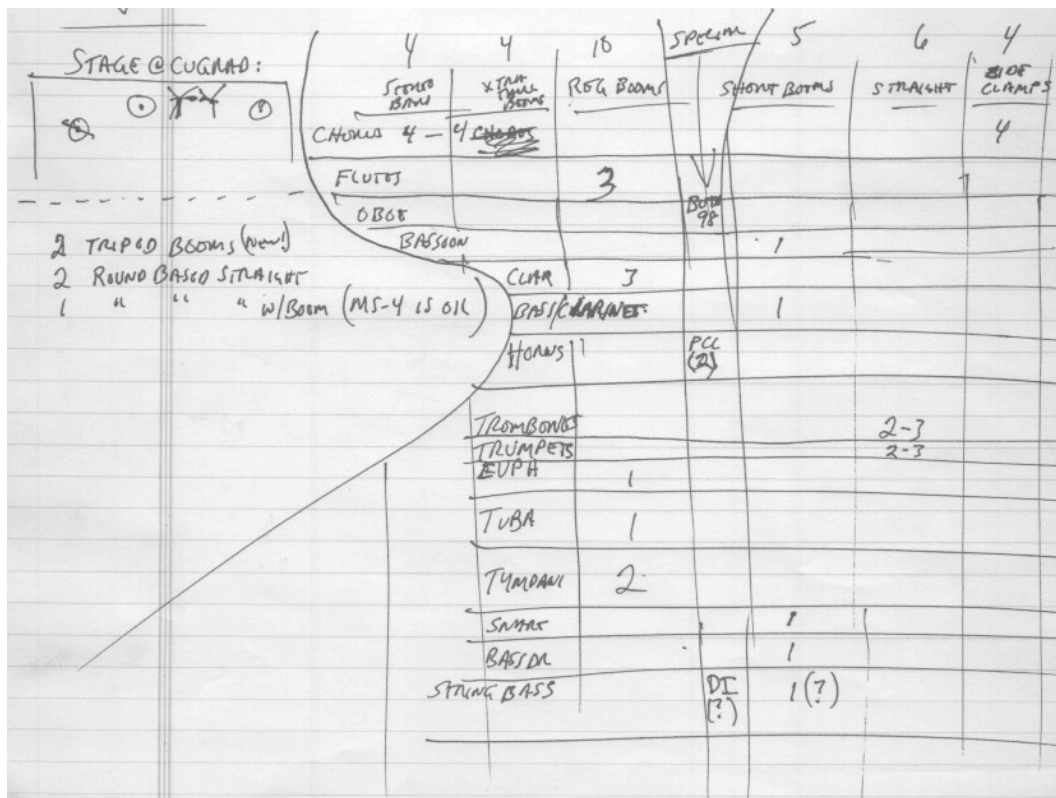 STAGE @ CUGRAD:
2 TRIPOD BOOMS (NEW!)
2 ROUND BASED STRAIGHT
1 " " " W/BOOM (MS-4 IS OK)
4 4 10 SPECIAL 5 6 4
XTRA BOOMS REG BOOMS SHORT BOOMS STRAIGHT SIDE CLAMPS
CHORUS 4 - 4 CHORUS 4
FLUTES 3
OBOE BOTH 98
BASSOON 1
CLAR 3
BASS/CLARINET 1
HORNS PCC (2)
TROMBONES 2-3
TRUMPETS 2-3
EUPH 1
TUBA 1
TYMPANI 2
SNARE 1
BASS DR 1
STRING BASS DI (?) 1 (?)